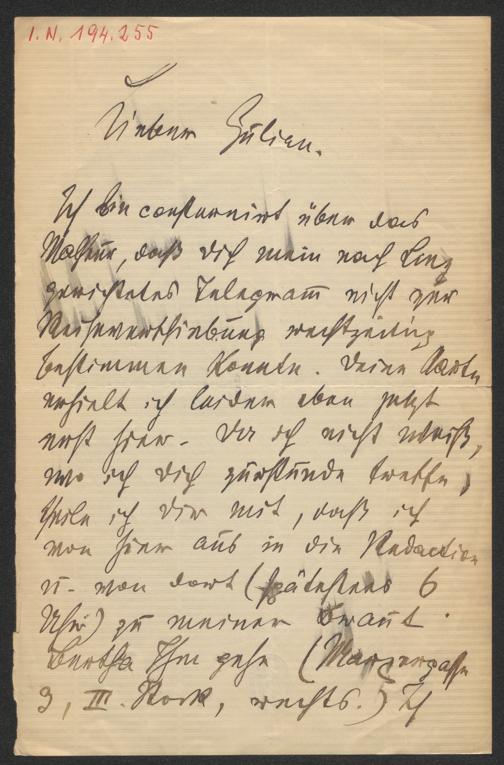 I. N. 194.255
Lieber Julian.
Ich bin consternirt über das
Malheur, daß dich mein nach Linz
gerichtetes Telegramm nicht zur
Reiseverschiebung rechtzeitig
bestimmen konnte. Deine Karte
erhielt ich leider eben jetzt
erst hier. Da ich nicht weiß,
wo ich dich zur Stunde treffe,
theile ich dir mit, daß ich
von hier aus in die Redaction
u. von dort (spätestens 6
Uhr) zu meiner Braut
Bertha Ihm gehe (Marxergasse
3, III. Stock, rechts.) Ich